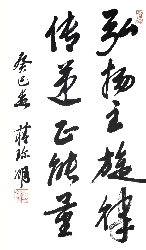 弘扬主旋律
传递正能量
癸巳冬 蒋琢明